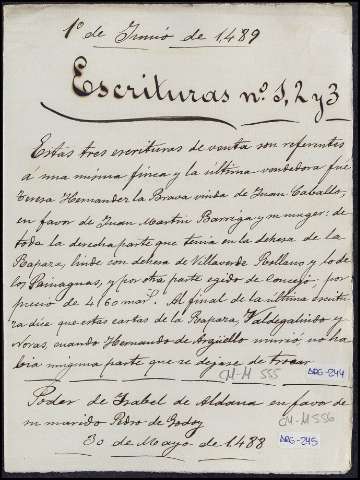 1º de Junio de 1,489
Escrituras nº 1, 2 y 3
Estas tres escrituras de venta son referentes
á una misma finca y la última vendedora fué
Teresa Hernandez la Brava viuda de Juan Caballo,
en favor de Juan Martin Barriga y su muger: de
toda la derecha parte que tenia en la dehesa de la
Rapara, linde con dehesa de Villaverde Rollano y lo de
los Paniaguas, y por otra parte egido de Concejo; por
precio de 4160 mar.s Al final de la última escritu
ra dice que estas cartas de la Rapara, Valdegalindo y
otras, cuando Hernando de Argüello murió, no ha
bia ninguna parte que se dejase de trocar
CM-M 555
ARG-244
Poder de Isabel de Aldana en favor de
su marido Pedro de Godoy
CM-M 556
30 de Mayo de 1,488
ARG-245